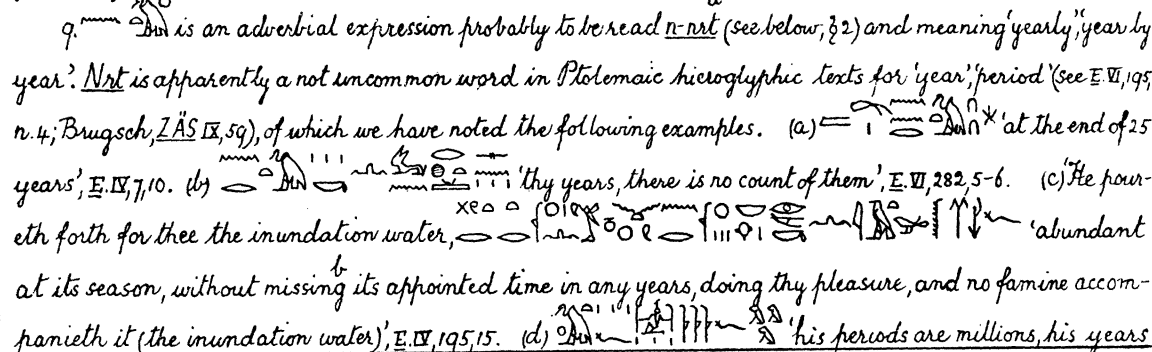 q. is an adverbial expression probably to be read n-nrt (see below, § 2) and meaning 'yearly', 'year by
year'. Nrt is apparently a not uncommon word in Ptolemaic hieroglyphic texts for 'year', 'period' (see E. VI, 195,
n. 4; Brugsch, ZÄS IX, 59), of which we have noted the following examples. (a) 'at the end of 25
years', E. IV, 7, 10. (b) 'thy years, there is no count of them', E. VI, 282, 5-6. (c) 'He pour-
eth forth for thee the inundation water, 'abundant
at its season, without missing b its appointed time in any years, doing thy pleasure, and no famine accom-
panieth it (the inundation water)', E. IV, 195, 15. (d) 'his periods are millions, his years